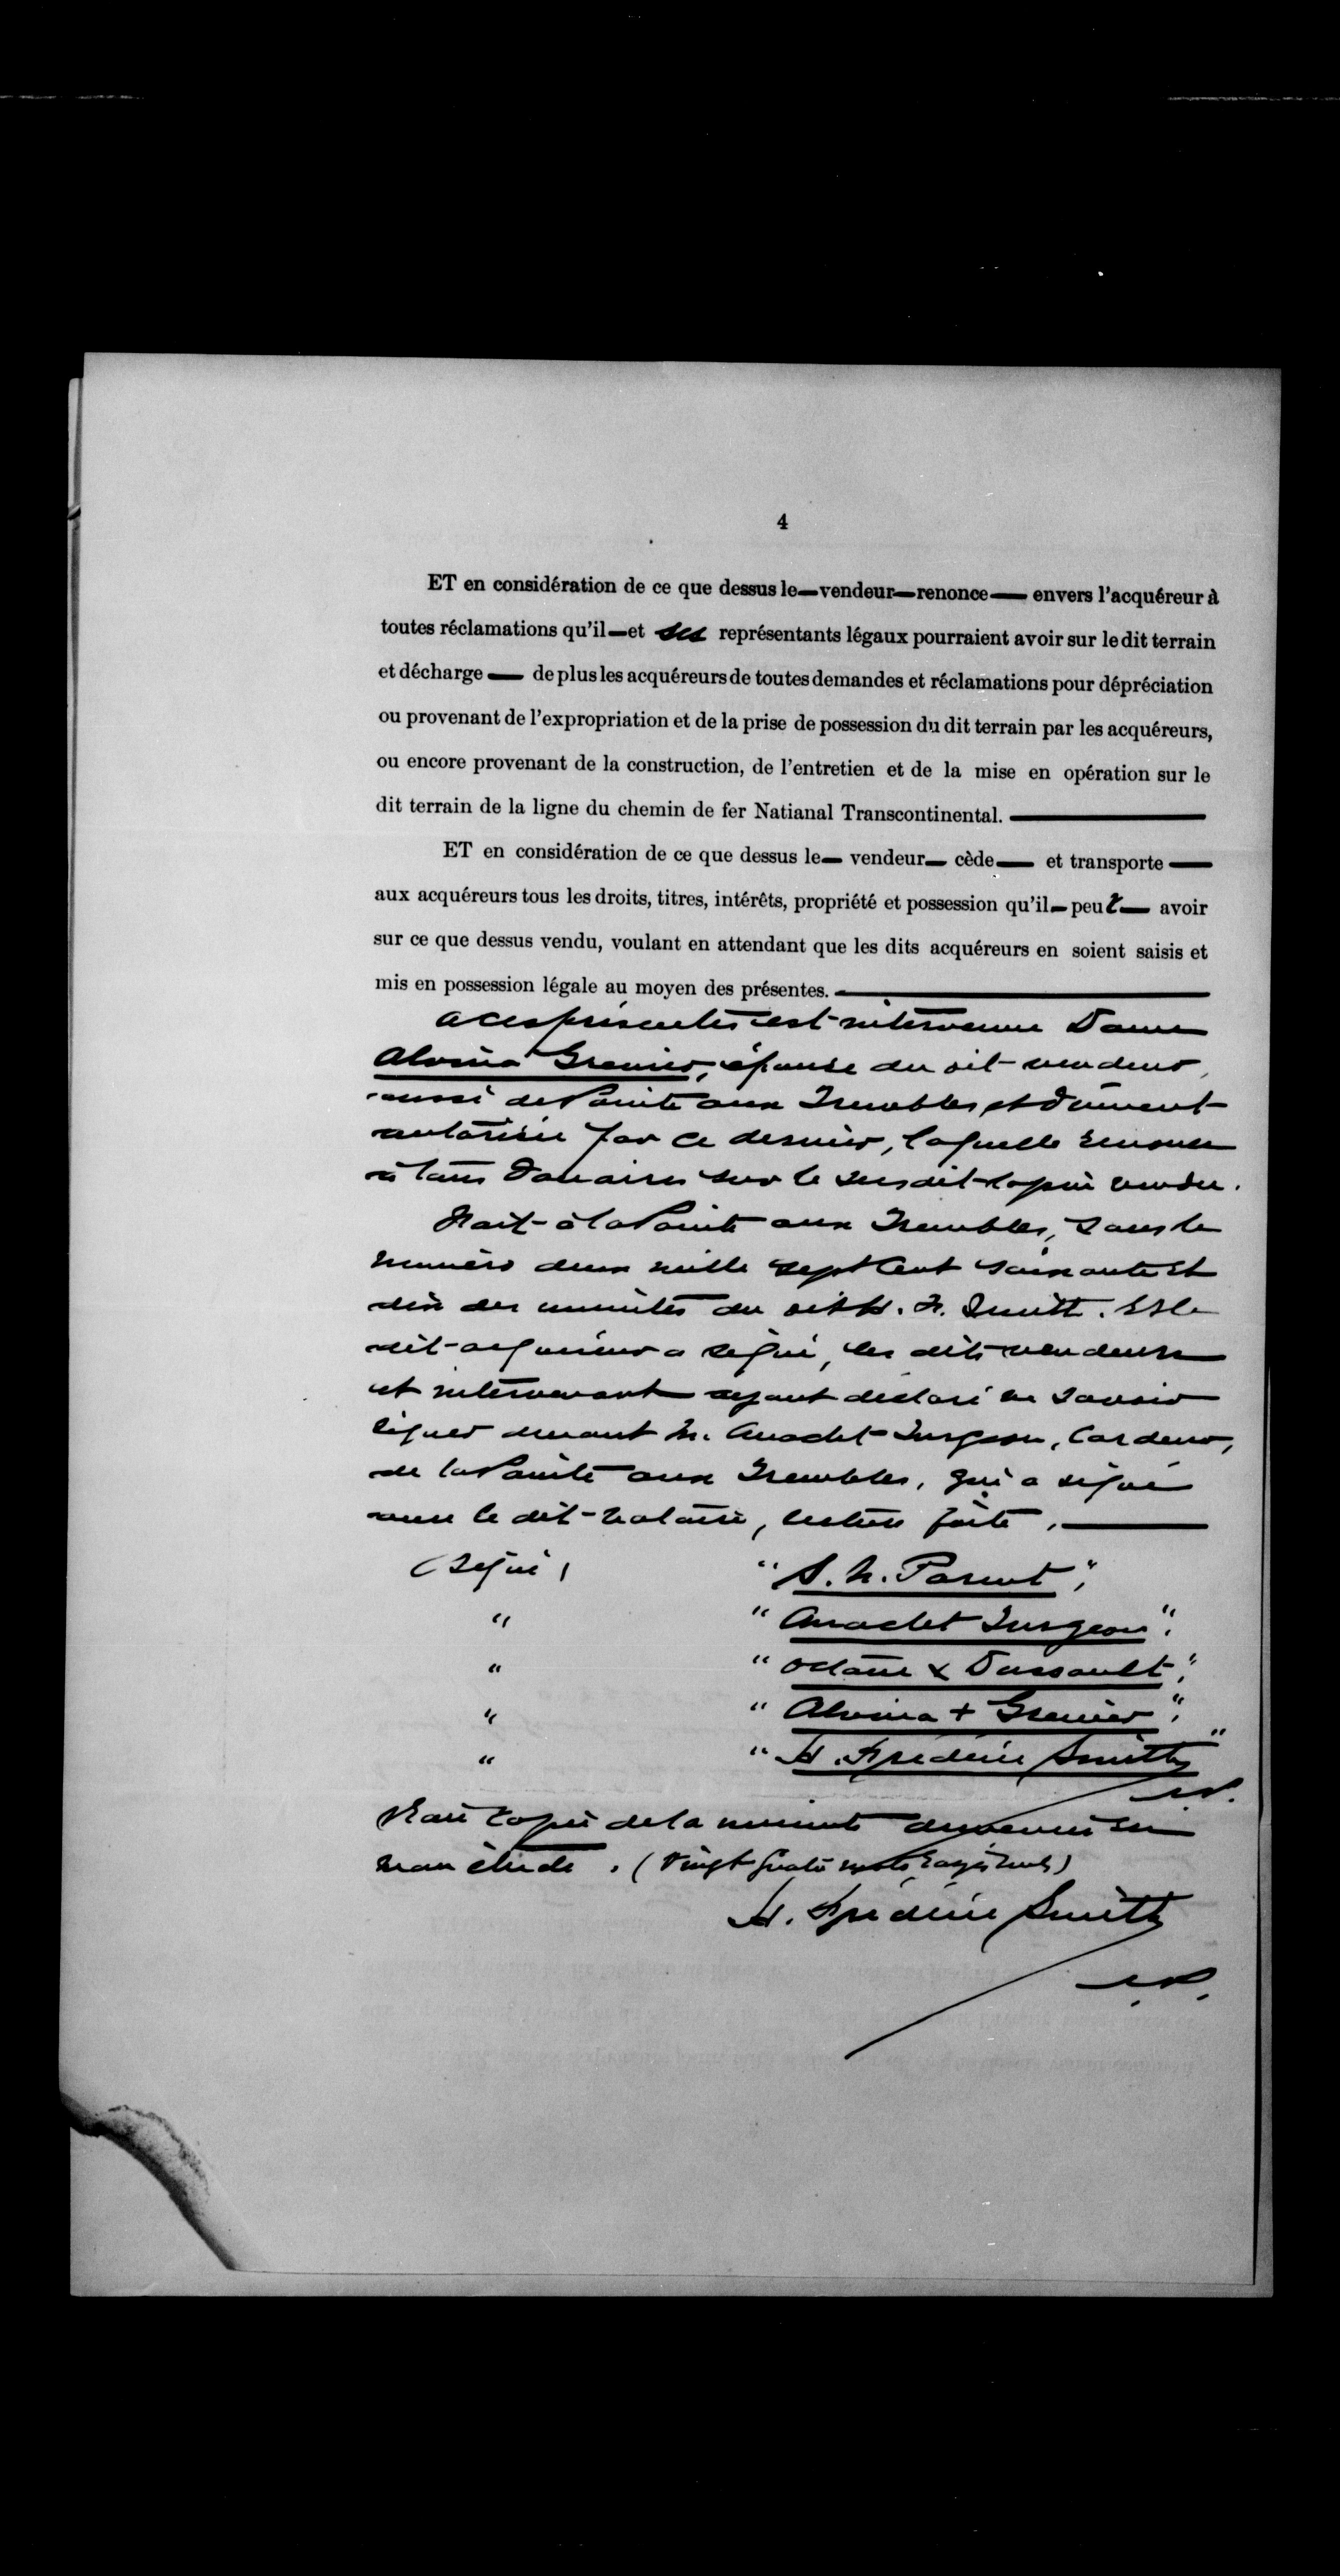 4
ET en considération de ce que dessus le—vendeur—renonce— envers l'acquéreur à
toutes réclamations qu'il—et ses représentants légaux pourraient avoir sur le dit terrain
et décharge— de plus les acquéreurs de toutes demandes et réclamations pour dépréciation
ou provenant de l'expropriation et de la prise de possession du dit terrain par les acquéreurs,
ou encore provenant de la construction, de l'entretien et de la mise en opération sur le
dit terrain de la ligne du chemin de fer Natianal Transcontinental.—
ET en considération de ce que dessus le— vendeur— cède— et transporte—
aux acquéreurs tous les droits, titres, intérêts, propriété et possession qu'il—peut— avoir
sur ce que dessus vendu, voulant en attendant que les dits acquéreurs en soient saisis et
mis en possession légale au moyen des présentes.—
A ces présentes est intervenue Dame
Alvina Grenier, épouse du dit vendeur,
aussi de Pointe aux Trembles et dûment
autorisée par ce dernier, laquelle renonce
à tous douaires sur le susdit lopin vendu.
Fait à la Pointe aux Trembles, sous le
numéro deux mille sept cent soixante et
dix des minutes du dit H. F. Smith. Et le
dit acquéreur a signé, les dits vendeurs
et intervenant ayant déclaré ne savoir
signer devant M. Anaclet Turgeon, Cardeur,
de la Pointe aux Trembles, qui a signé
avec le dit notaire, lecture faite.—
(Signé) "S. N. Parent",
" "Anaclet Turgeon".
" "Octave x Dussault",
" "Alvina + Grenier".
" "H. Frédéric Smith"
N.P.
Vraie copie de la minute demeurée en
mon étude. (Vingt quatre mots rayés nuls)
H. Frédéric Smith
N.P.